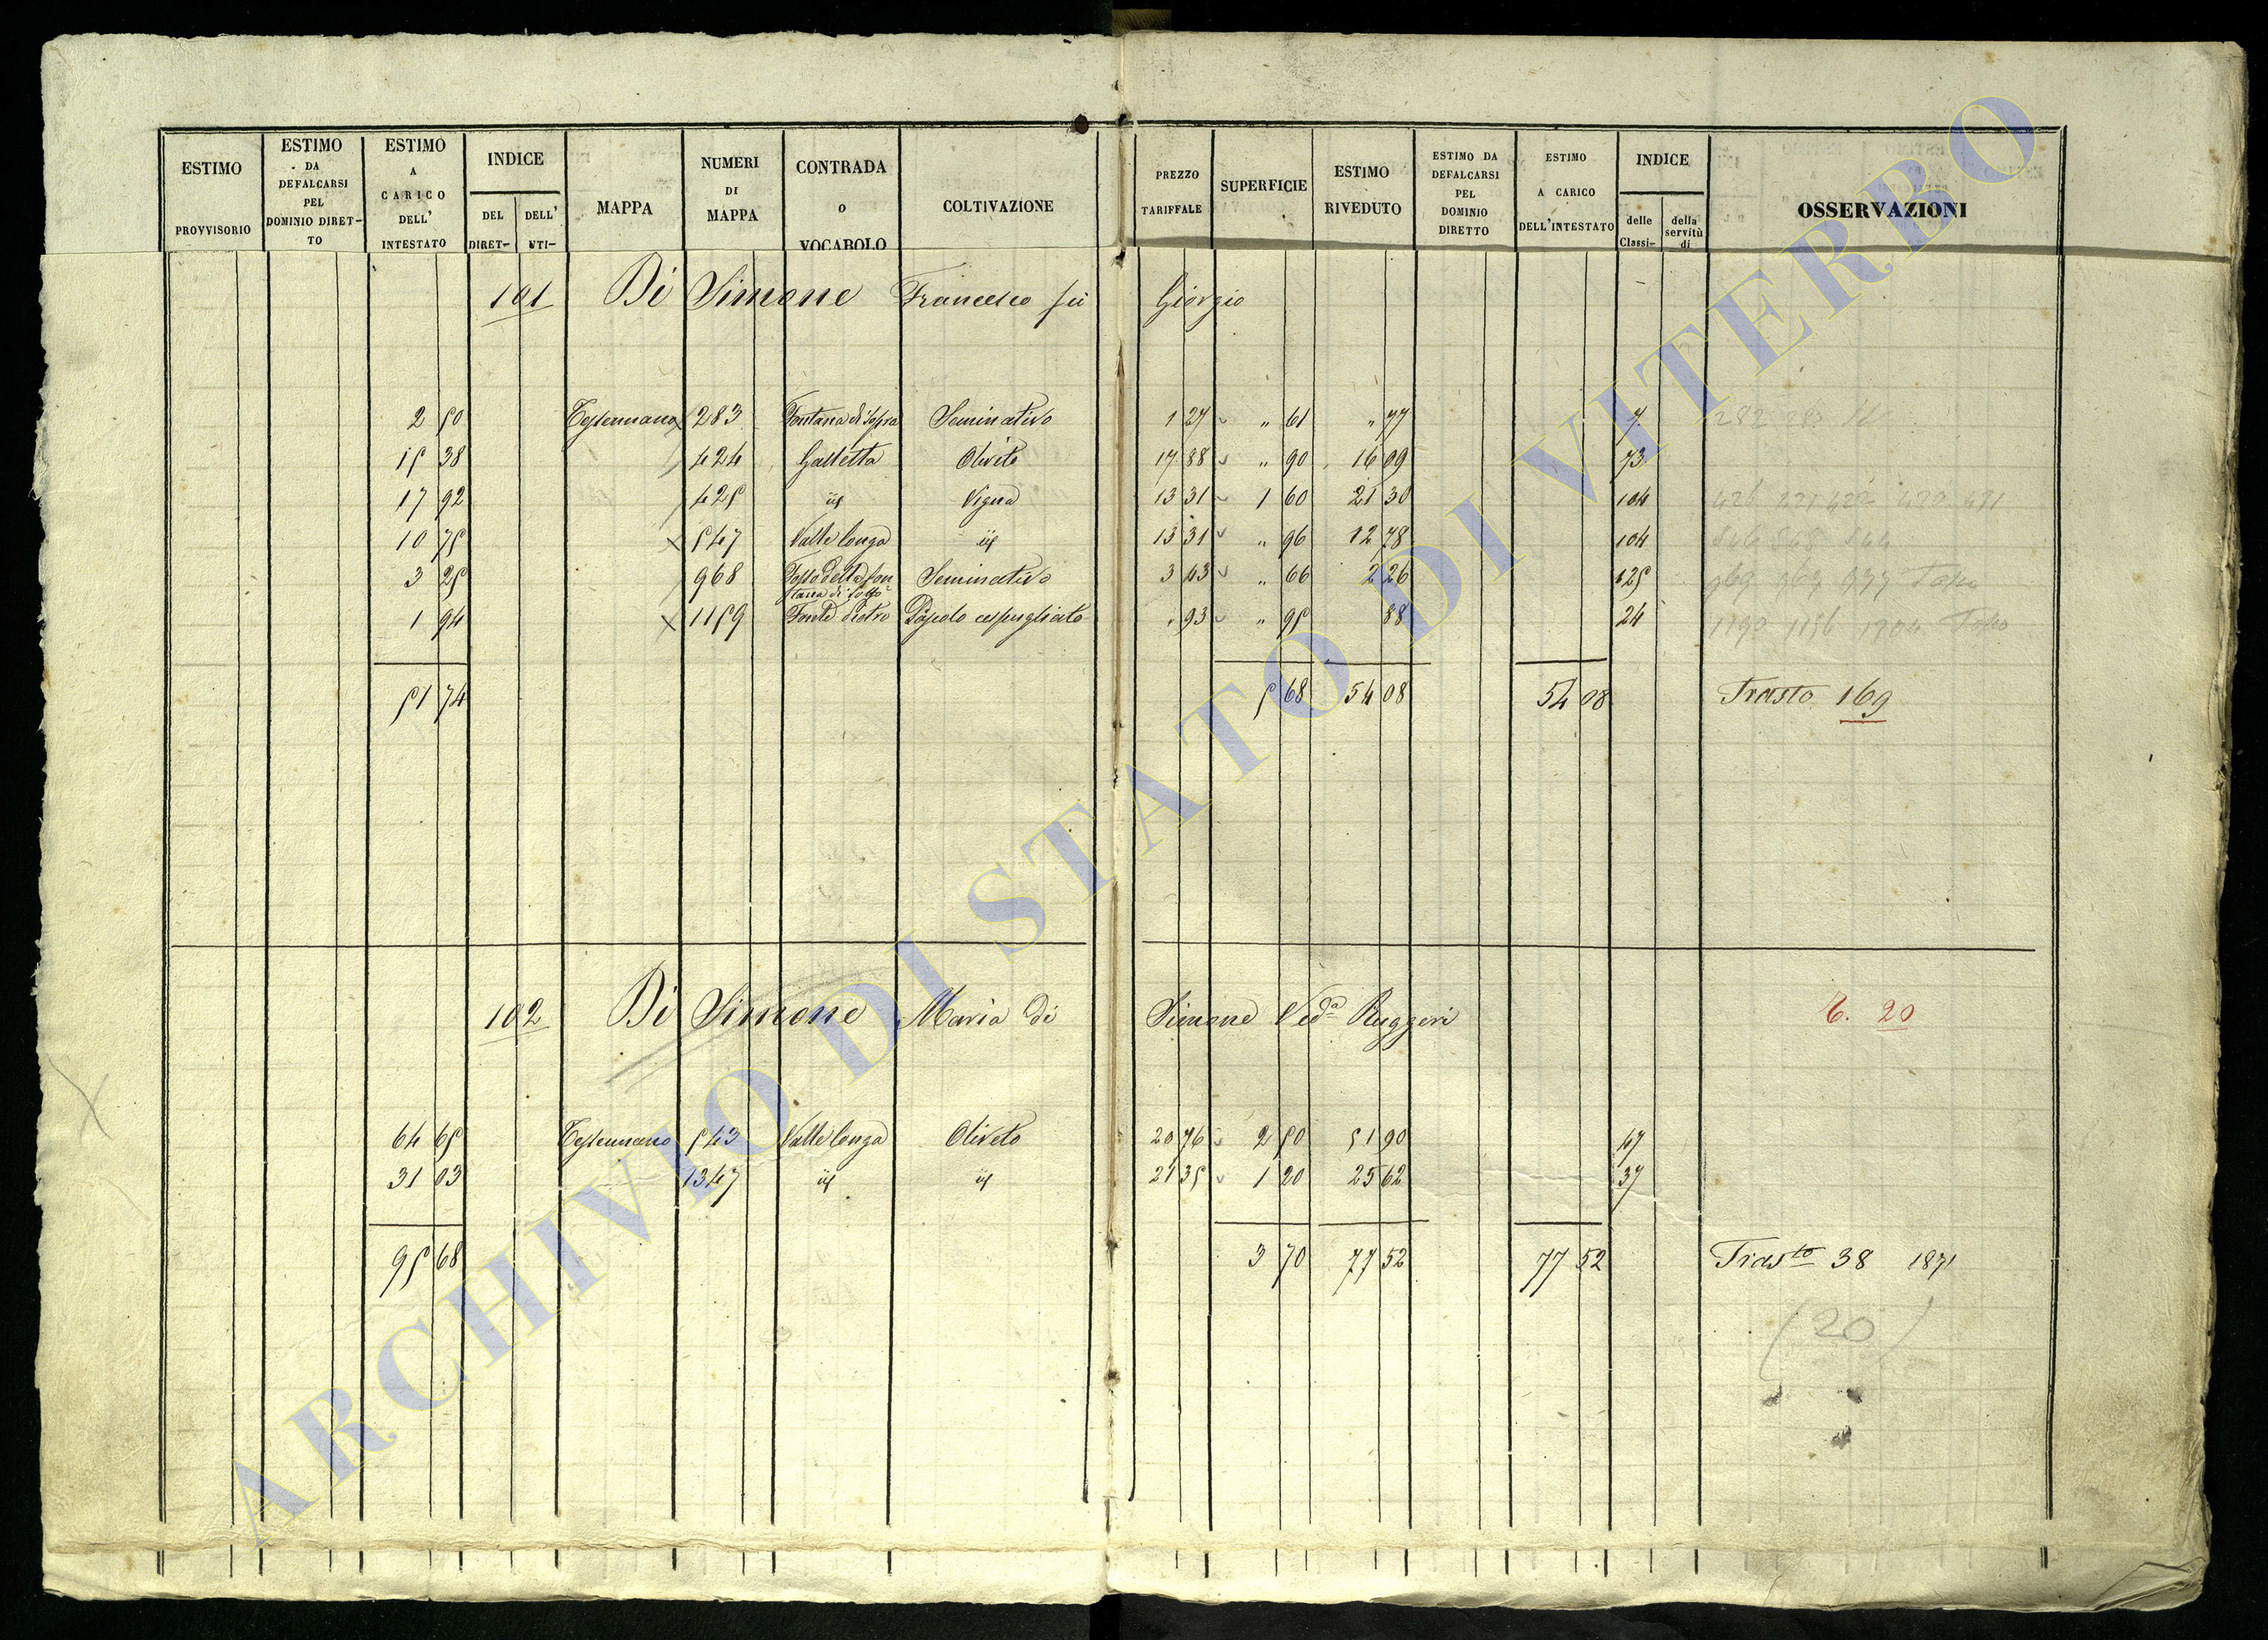 ESTIMO PROVVISORIO
ESTIMO DA DEFALCARSI PEL DOMINIO DIRET-TO
ESTIMO A CARICO DELL' INTESTATO
INDICE
DEL DIRET-
DELL' UTI-
MAPPA
NUMERI DI MAPPA
CONTRADA o VOCABOLO
COLTIVAZIONE
PREZZO TARIFFALE
SUPERFICIE
ESTIMO RIVEDUTO
ESTIMO DA DEFALCARSI PEL DOMINIO DIRETTO
ESTIMO A CARICO DELL'INTESTATO
INDICE
delle Classi-
della servitù di
OSSERVAZIONI
101 Di Simone Francesco fu Giorgio
2 50 283 Fontana di Sopra Seminativo 1 27 „ 61 „ 77 7
15 38 424 Galletta Olivito 17 88 „ 90 16 09 73
17 92 425 id Vigna 13 31 1 60 21 30 104
10 75 547 Valle longa id 13 31 „ 96 12 78 104
3 25 968 Fosso della fontana di sotto Seminativo 3 43 „ 66 2 26 125
1 94 1159 Fonte Pietro Pascolo cespugliato „ 93 „ 95 88 24
51 74 5 68 54 08 54 08 Trasto 169
102 Di Simone Maria di Simone Ved.a Ruggeri T. 20
64 65 543 Valle longa Oliveto 20 76 2 50 51 90 47
31 03 1347 id id 21 35 1 20 25 62 37
95 68 3 70 77 52 77 52 Trasto 38 1871
(20)
ARCHIVIO DI STATO DI VITERBO